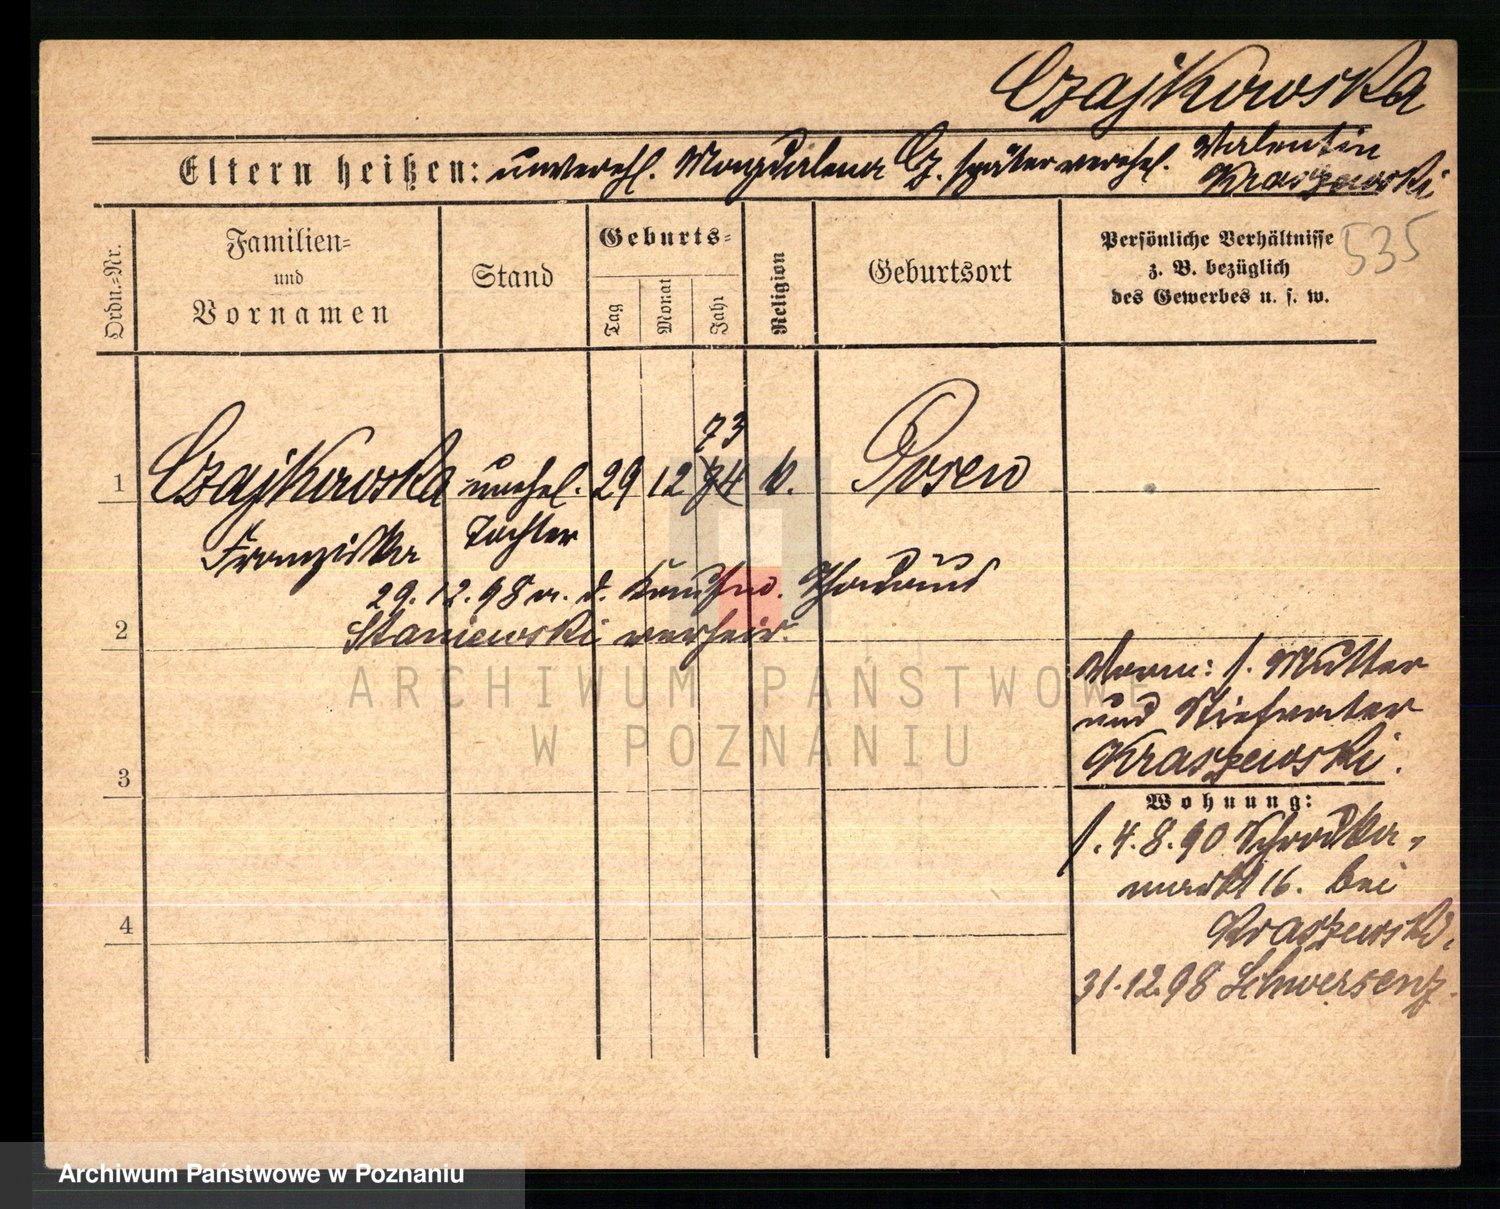 Czajkowska
Eltern heißen: unverehl. Magdalena Cz. später verehel. Valentin
Kraszewski
Ordn.-Nr.
Familien-
und
Vornamen
Stand
Geburts-
Tag
Monat
Jahr
Religion
Geburtsort
Persönliche Verhältnisse
z. B. bezüglich
des Gewerbes u. s. w.
535
73
1 Czajkowska unehel. 29 12 74 k. Posen
Franziska Tochter
29.12.98 m. d. Kaufm. Thadäus
2 Staniewski verheir.
3
4
Vorm: s. Mutter
und Stiefvater
Kraszewski.
Wohnung:
s. 4.8.90 Schrodka-
markt 16. bei
Kraszewski.
31.12.98 Schwersenz.
ARCHIWUM PAŃSTWOWE
W POZNANIU
Archiwum Państwowe w Poznaniu